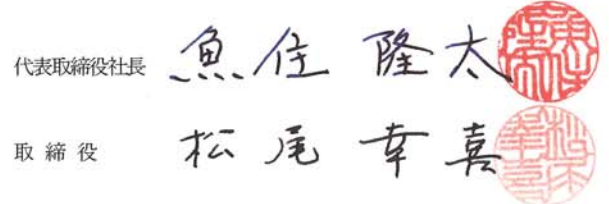 代表取締役社長 魚住 隆太
取締役 松尾 幸喜